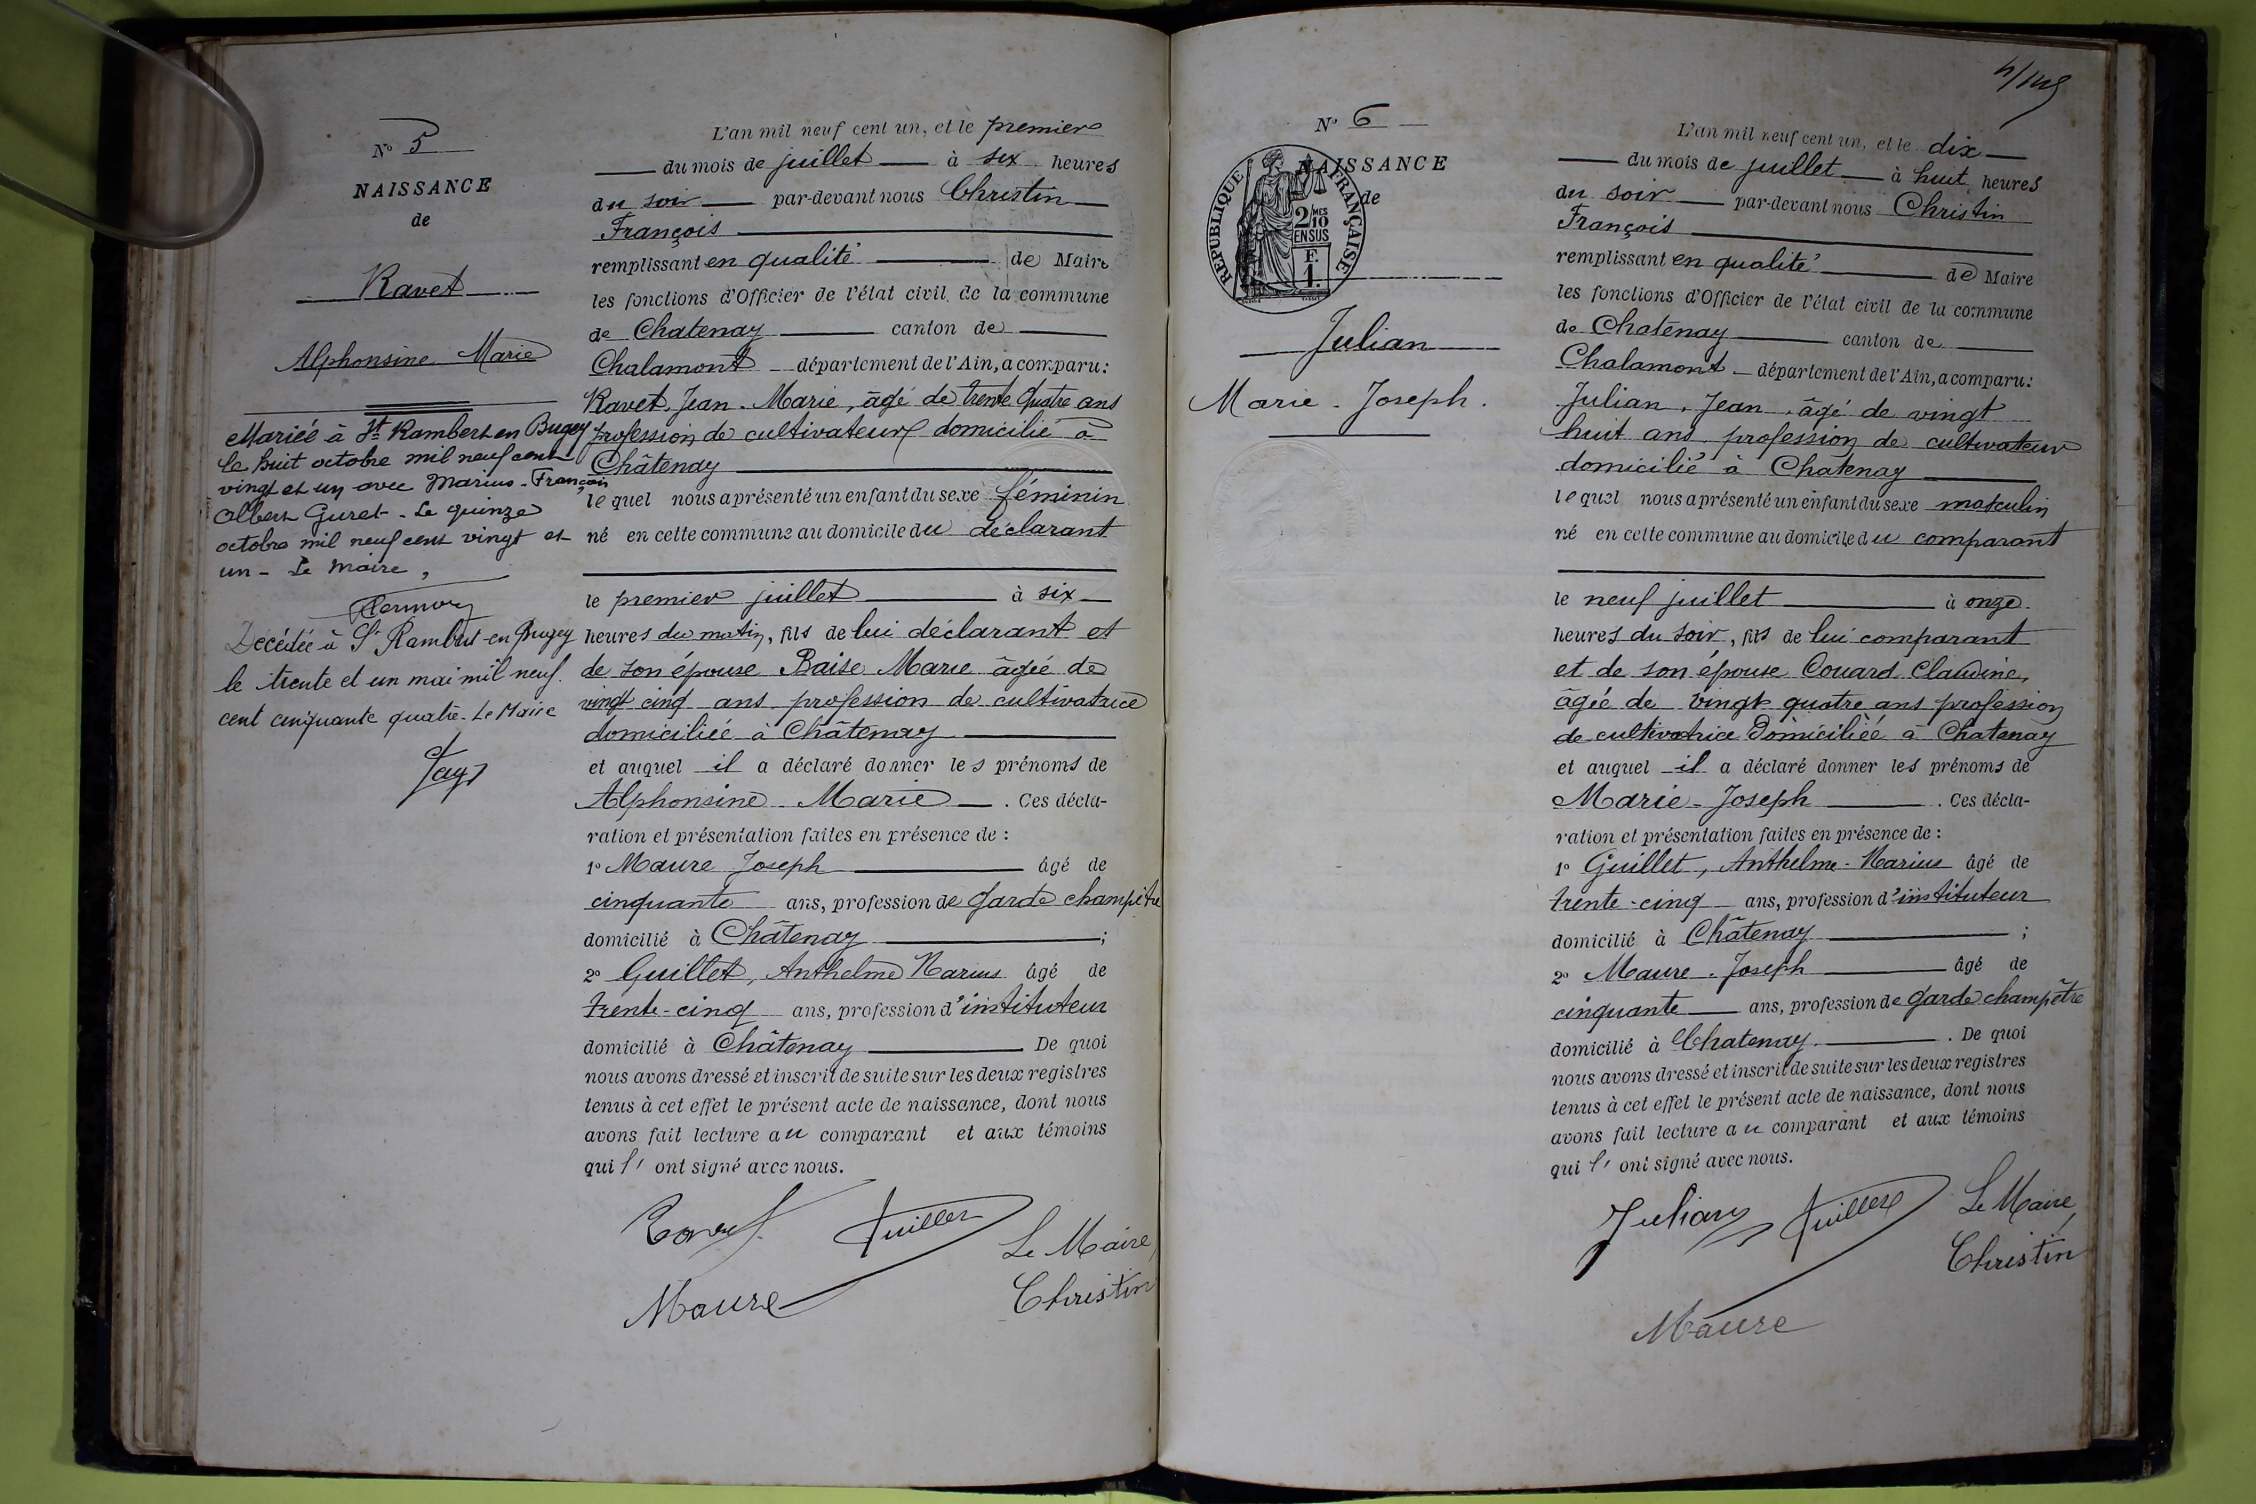 N° 5
NAISSANCE
de
Ravet
Alphonsine Marie
Mariée à St Rambert en Bugey
le huit octobre mil neuf cent
vingt et un avec Marius-François
Albert Guret - Le quinze
octobre mil neuf cent vingt et
un - Le Maire,
Décédée à St Rambert-en-Bugey
le trente et un mai mil neuf
cent cinquante quatre. Le Maire
L'an mil neuf cent un, et le premier
du mois de juillet à six heures
du soir par-devant nous Christin
François
remplissant en qualité de Maire
les fonctions d'Officier de l'état civil de la commune
de Chatenay canton de
Chalamont département de l'Ain, a comparu:
Ravet, Jean-Marie, âgé de trente quatre ans
profession de cultivateur domicilié à
Châtenay
lequel nous a présenté un enfant du sexe féminin
né en cette commune au domicile du déclarant
le premier juillet à six
heures du matin, fils de lui déclarant et
de son épouse Baise Marie âgée de
vingt cinq ans profession de cultivatrice
domiciliée à Châtenay
et auquel il a déclaré donner les prénoms de
Alphonsine Marie. Ces décla-
ration et présentation faites en présence de :
1° Maure Joseph âgé de
cinquante ans, profession de garde champêtre
domicilié à Châtenay ;
2° Guillet, Anthelme Marius âgé de
trente-cinq ans, profession d'instituteur
domicilié à Châtenay De quoi
nous avons dressé et inscrit de suite sur les deux registres
tenus à cet effet le présent acte de naissance, dont nous
avons fait lecture au comparant et aux témoins
qui l' ont signé avec nous.
Ravet Guillet
Le Maire,
Maure Christin
N° 6
NAISSANCE
de
RÉPUBLIQUE FRANÇAISE
2/10 MES
EN SUS
F.
1.
Julian
Marie-Joseph.
L'an mil neuf cent un, et le dix
du mois de juillet à huit heures
du soir par-devant nous Christin
François
remplissant en qualité de Maire
les fonctions d'Officier de l'état civil de la commune
de Chatenay canton de
Chalamont département de l'Ain, a comparu:
Julian, Jean, âgé de vingt
huit ans profession de cultivateur
domicilié à Chatenay
lequel nous a présenté un enfant du sexe masculin
né en cette commune au domicile du comparant
le neuf juillet à onze
heures du soir, fils de lui comparant
et de son épouse Couard Claudine,
âgée de vingt quatre ans profession
de cultivatrice domiciliée à Chatenay
et auquel il a déclaré donner les prénoms de
Marie-Joseph. Ces décla-
ration et présentation faites en présence de :
1° Guillet, Anthelme-Marius âgé de
trente-cinq ans, profession d'instituteur
domicilié à Châtenay ;
2° Maure. Joseph âgé de
cinquante ans, profession de garde champêtre
domicilié à Chatenay. De quoi
nous avons dressé et inscrit de suite sur les deux registres
tenus à cet effet le présent acte de naissance, dont nous
avons fait lecture au comparant et aux témoins
qui l' ont signé avec nous.
Julian Guillet Le Maire,
Christin
Maure